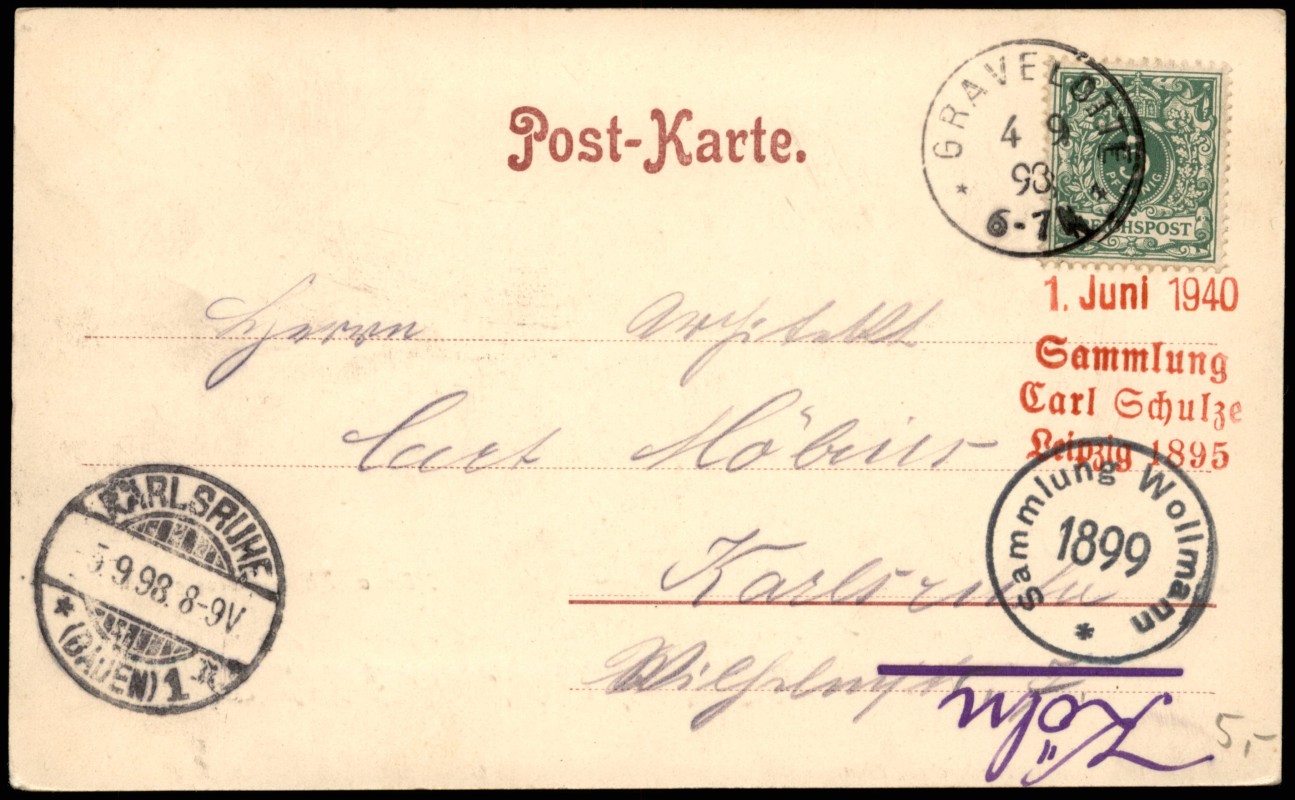 Post-Karte.
GRAVELOTTE
4 9
98.
6-7N
5
PFENNIG
REICHSPOST
1. Juni 1940
Sammlung
Carl Schulze
Leipzig 1895
Herrn Architekt
Carl Möbius
Karlsruhe
Wilhelmstr.
CARLSRUHE
5.9.98. 8-9V
* (BADEN) 1
Sammlung Wollmann
1899
*
Köln
5,-